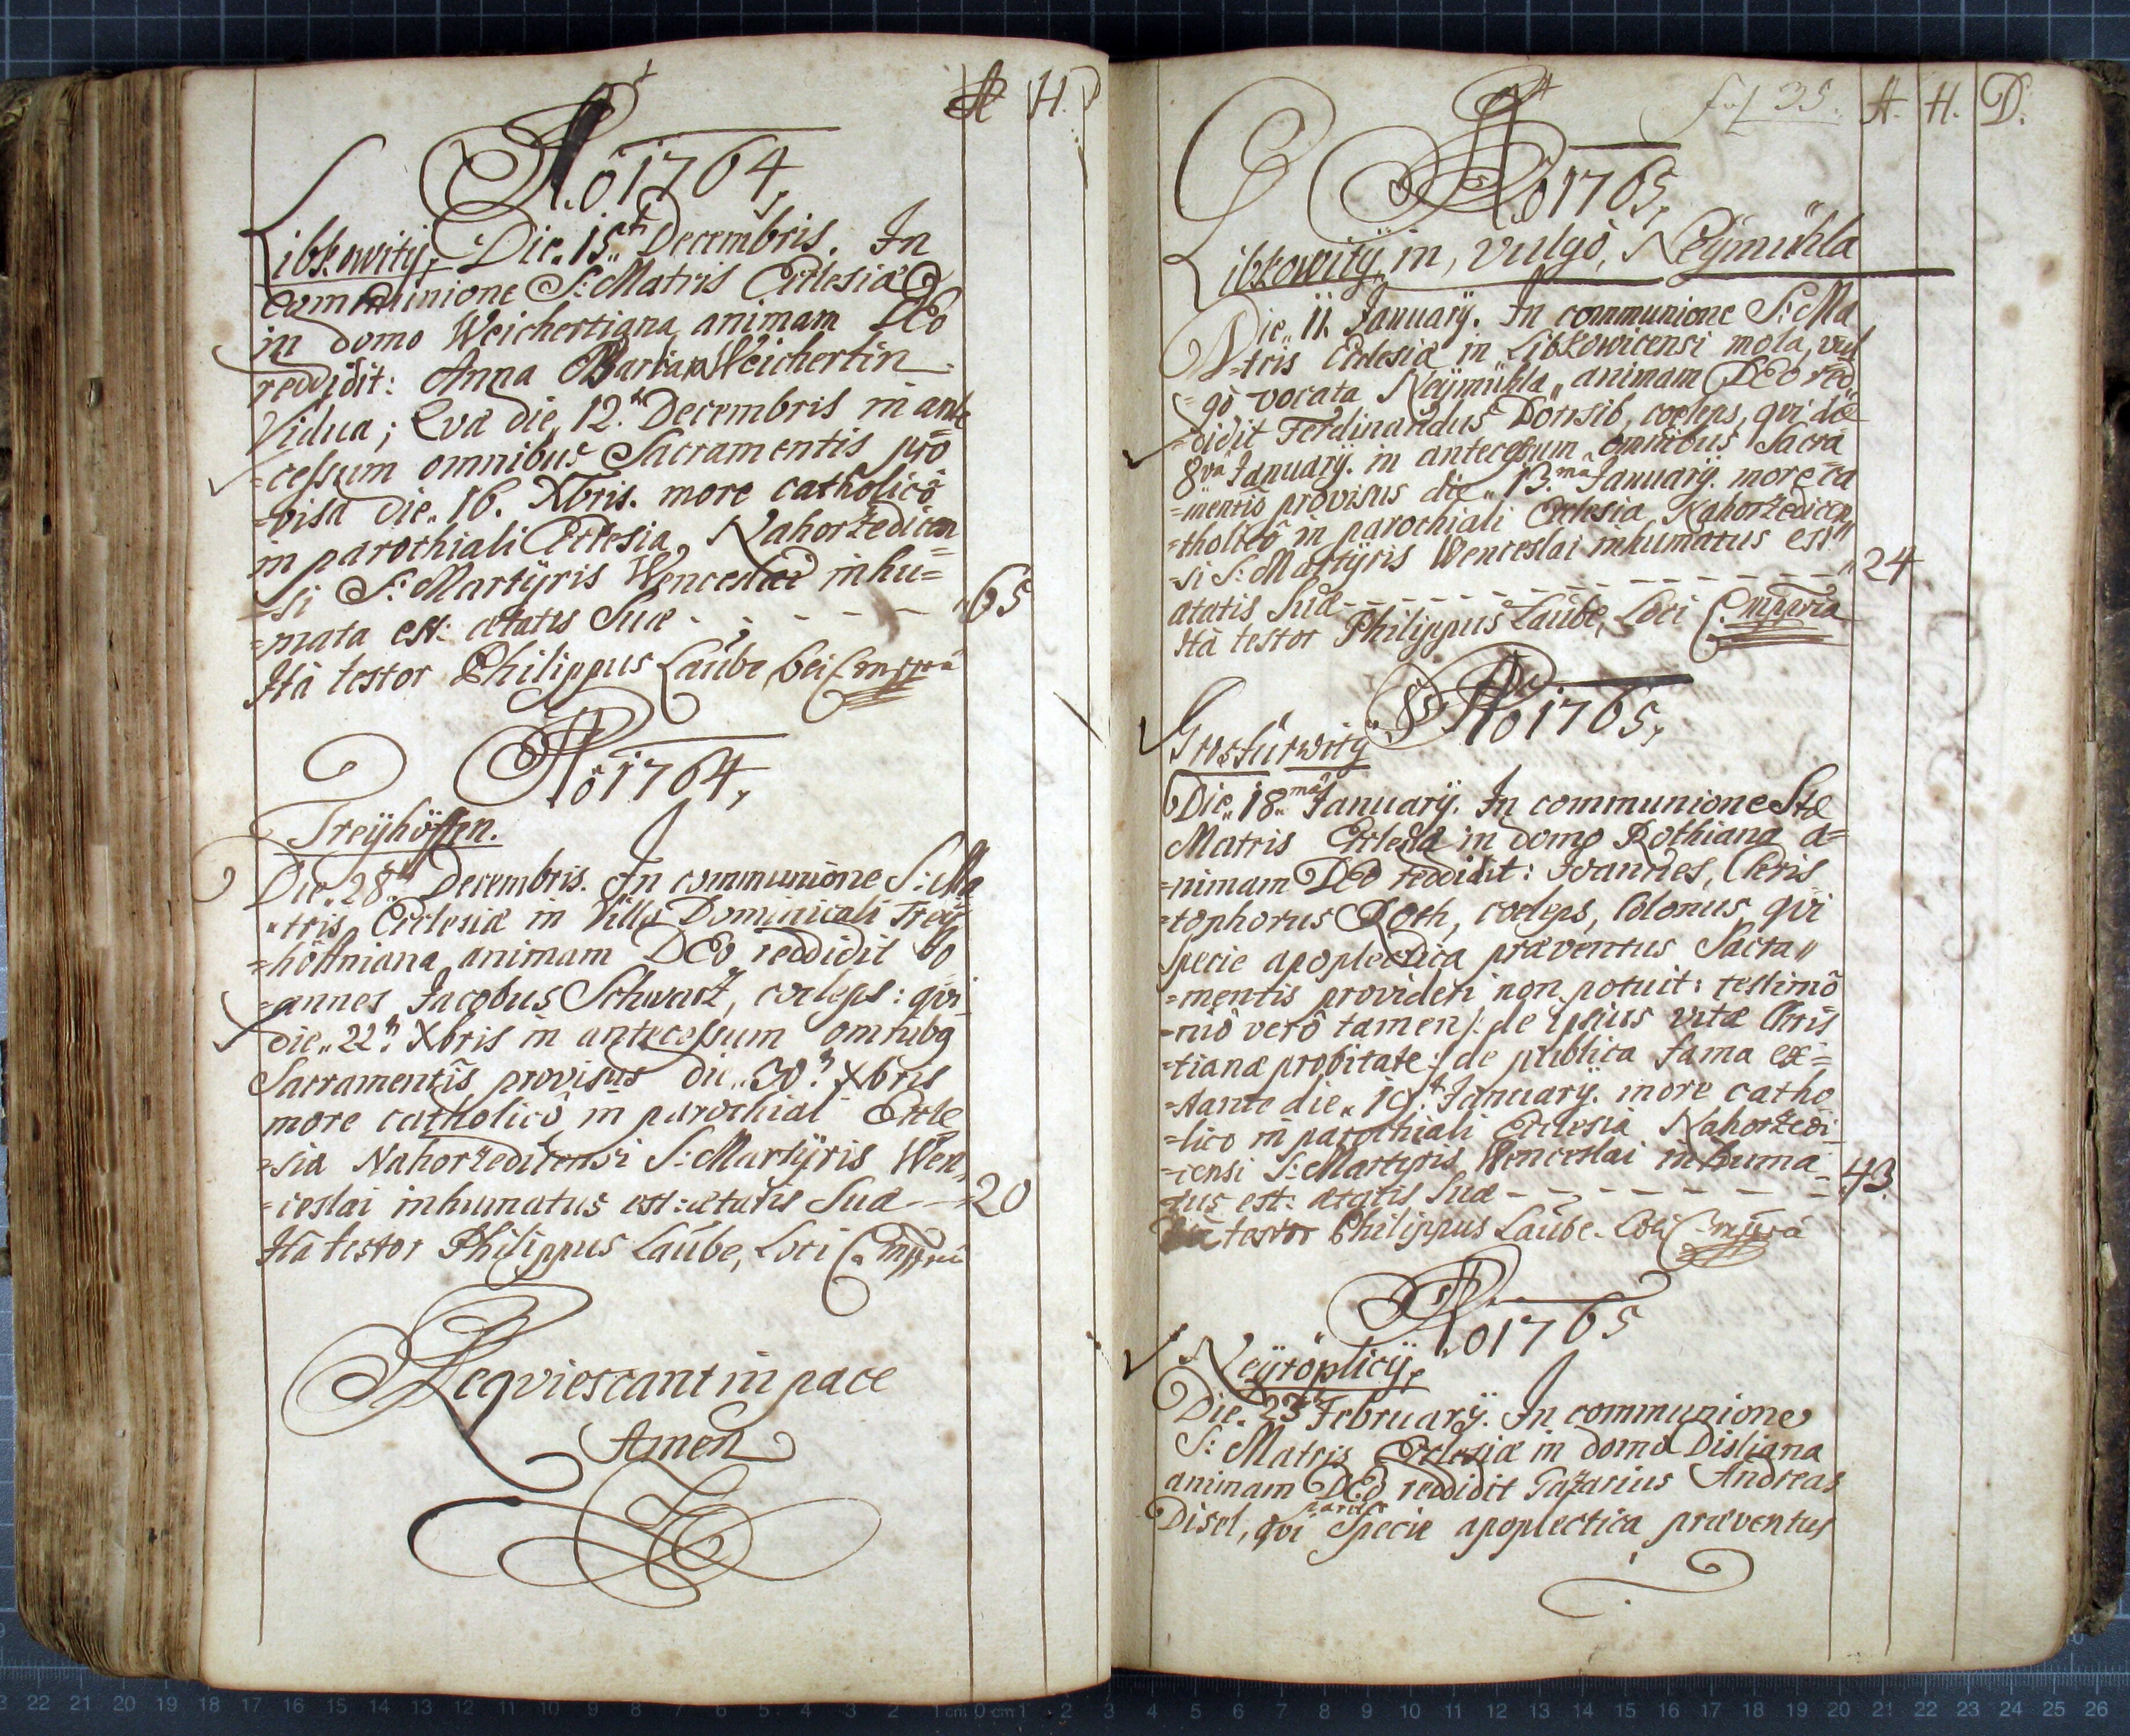 A. H. D
Ao 1764,
Libkowitij, Die 15ta Decembris. In
communione S: Matris Ecclesiæ
in domo Weichertiana animam DEo
reddidit: Anna Barbara Weichertin
Vidua; Qvæ die 12.ta Decembris in ante
=cessum omnibus Sacramentis pro
=visa die 16. Xbris. more catholicô
in parochiali Ecclesia Nahoržedicen
=si S: Martÿris Wenceslai inhu=
=mata est: ætatis Suæ - - - - 65
Ità testor Philippus Laube, loci C. mppria
Ao 1764,
Treÿhöffen.
Die 28ta Decembris. In communione S: Ma
=tris Ecclesiæ in Villa Dominicali Treÿ
=höffniana animam DEo reddidit Jo
=annes Jacobus Schwartz, cœlebs: qvi
die 22ta Xbris in antecessum omnibg
Sacramentis provisus die 30ta Xbris
more catholicô in parochiali Eccle
=sia Nahoržedicensi S: Martÿris Wen
=ceslai inhumatus est: ætatis Suæ - - 20
Ità testor Philippus Laube, Loci C. mppria
Reqviescant in pace
Amen
fol 35. A. H. D.
Ao 1765,
Libkowitij in, vulgò, Neÿmühla
Die 11. Januarÿ. In communione S: Ma
=tris Ecclesiæ in Libkowicensi mola, vul
=gò vocata Neÿmühla animam DEo red
=didit Ferdinandus, cœlebs, qvi die
8va Januarÿ. in antecessum omnibus Sacra
=mentis provisus die 13.ma Januarÿ. more ca
=tholicô in parochiali Ecclesia Nahoržedicen
=si S: Martÿris Wenceslai inhumatus est
ætatis Suæ - - - - - - - - 24
Ità testor Philippus Laube, Loci C. mppria
Ao 1765,
Grosfürwitij
Die 18.ma Januarÿ. In communione Stæ
Matris Ecclesiæ in domo Rothiana a=
=nimam DEo reddidit: Joannes, Chris
=tophorus Roth, cœlebs, Colonus, qvi
specie apoplectica præventus Sacra
=mentis provideri non potuit: testimo
=niô verô tamen /: de ipsius vitæ Chris
=tianæ probitate :/ de publica fama ex=
=stante die 19ta Januarÿ. more catho
=lico in parochiali Ecclesia Nahoržedi
=censi S: Martyris Wenceslai inhuma
=tus est: ætatis Suæ - - - - - - 43
Ità testor Philippus Laube. Loci C. mppria
Ao 1765
Neÿtöplicij,
Die 23ta Februarÿ. In communione
S: Matris Ecclesiæ in domo Disliana
animam DEo reddidit Andreas
pariter
Disel, qvi Specie apoplectica præventus